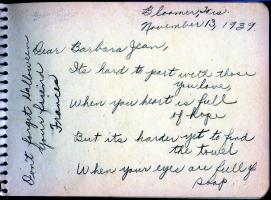 Bloomer, Wis.
November 13, 1939
Dear Barbara Jean,
Its hard to part with those
you love,
When you heart is full
of hope
But its harder yet to find
the towel
When your eyes are full of
soap
Don't forget Halloween
Your friend
Frances